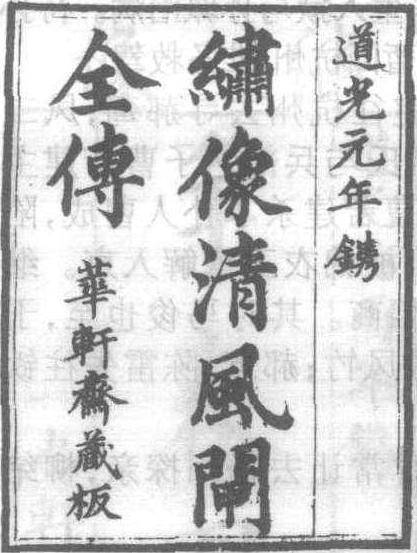 道光元年鐫
繡像清風閘
全傳
華軒齋藏板